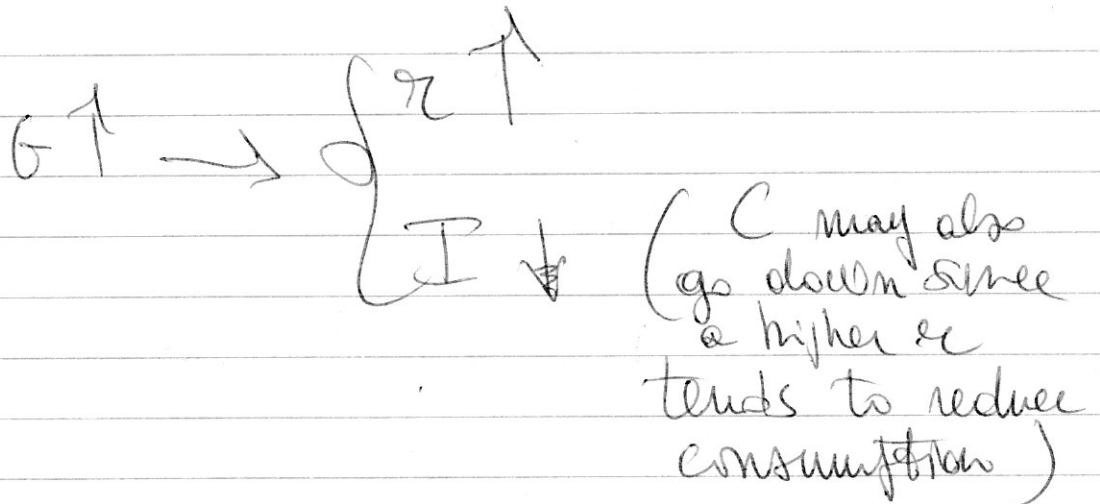 G↑ → { r ↑
I ↓
( C may also
go down since
a higher r
tends to reduce
consumption )